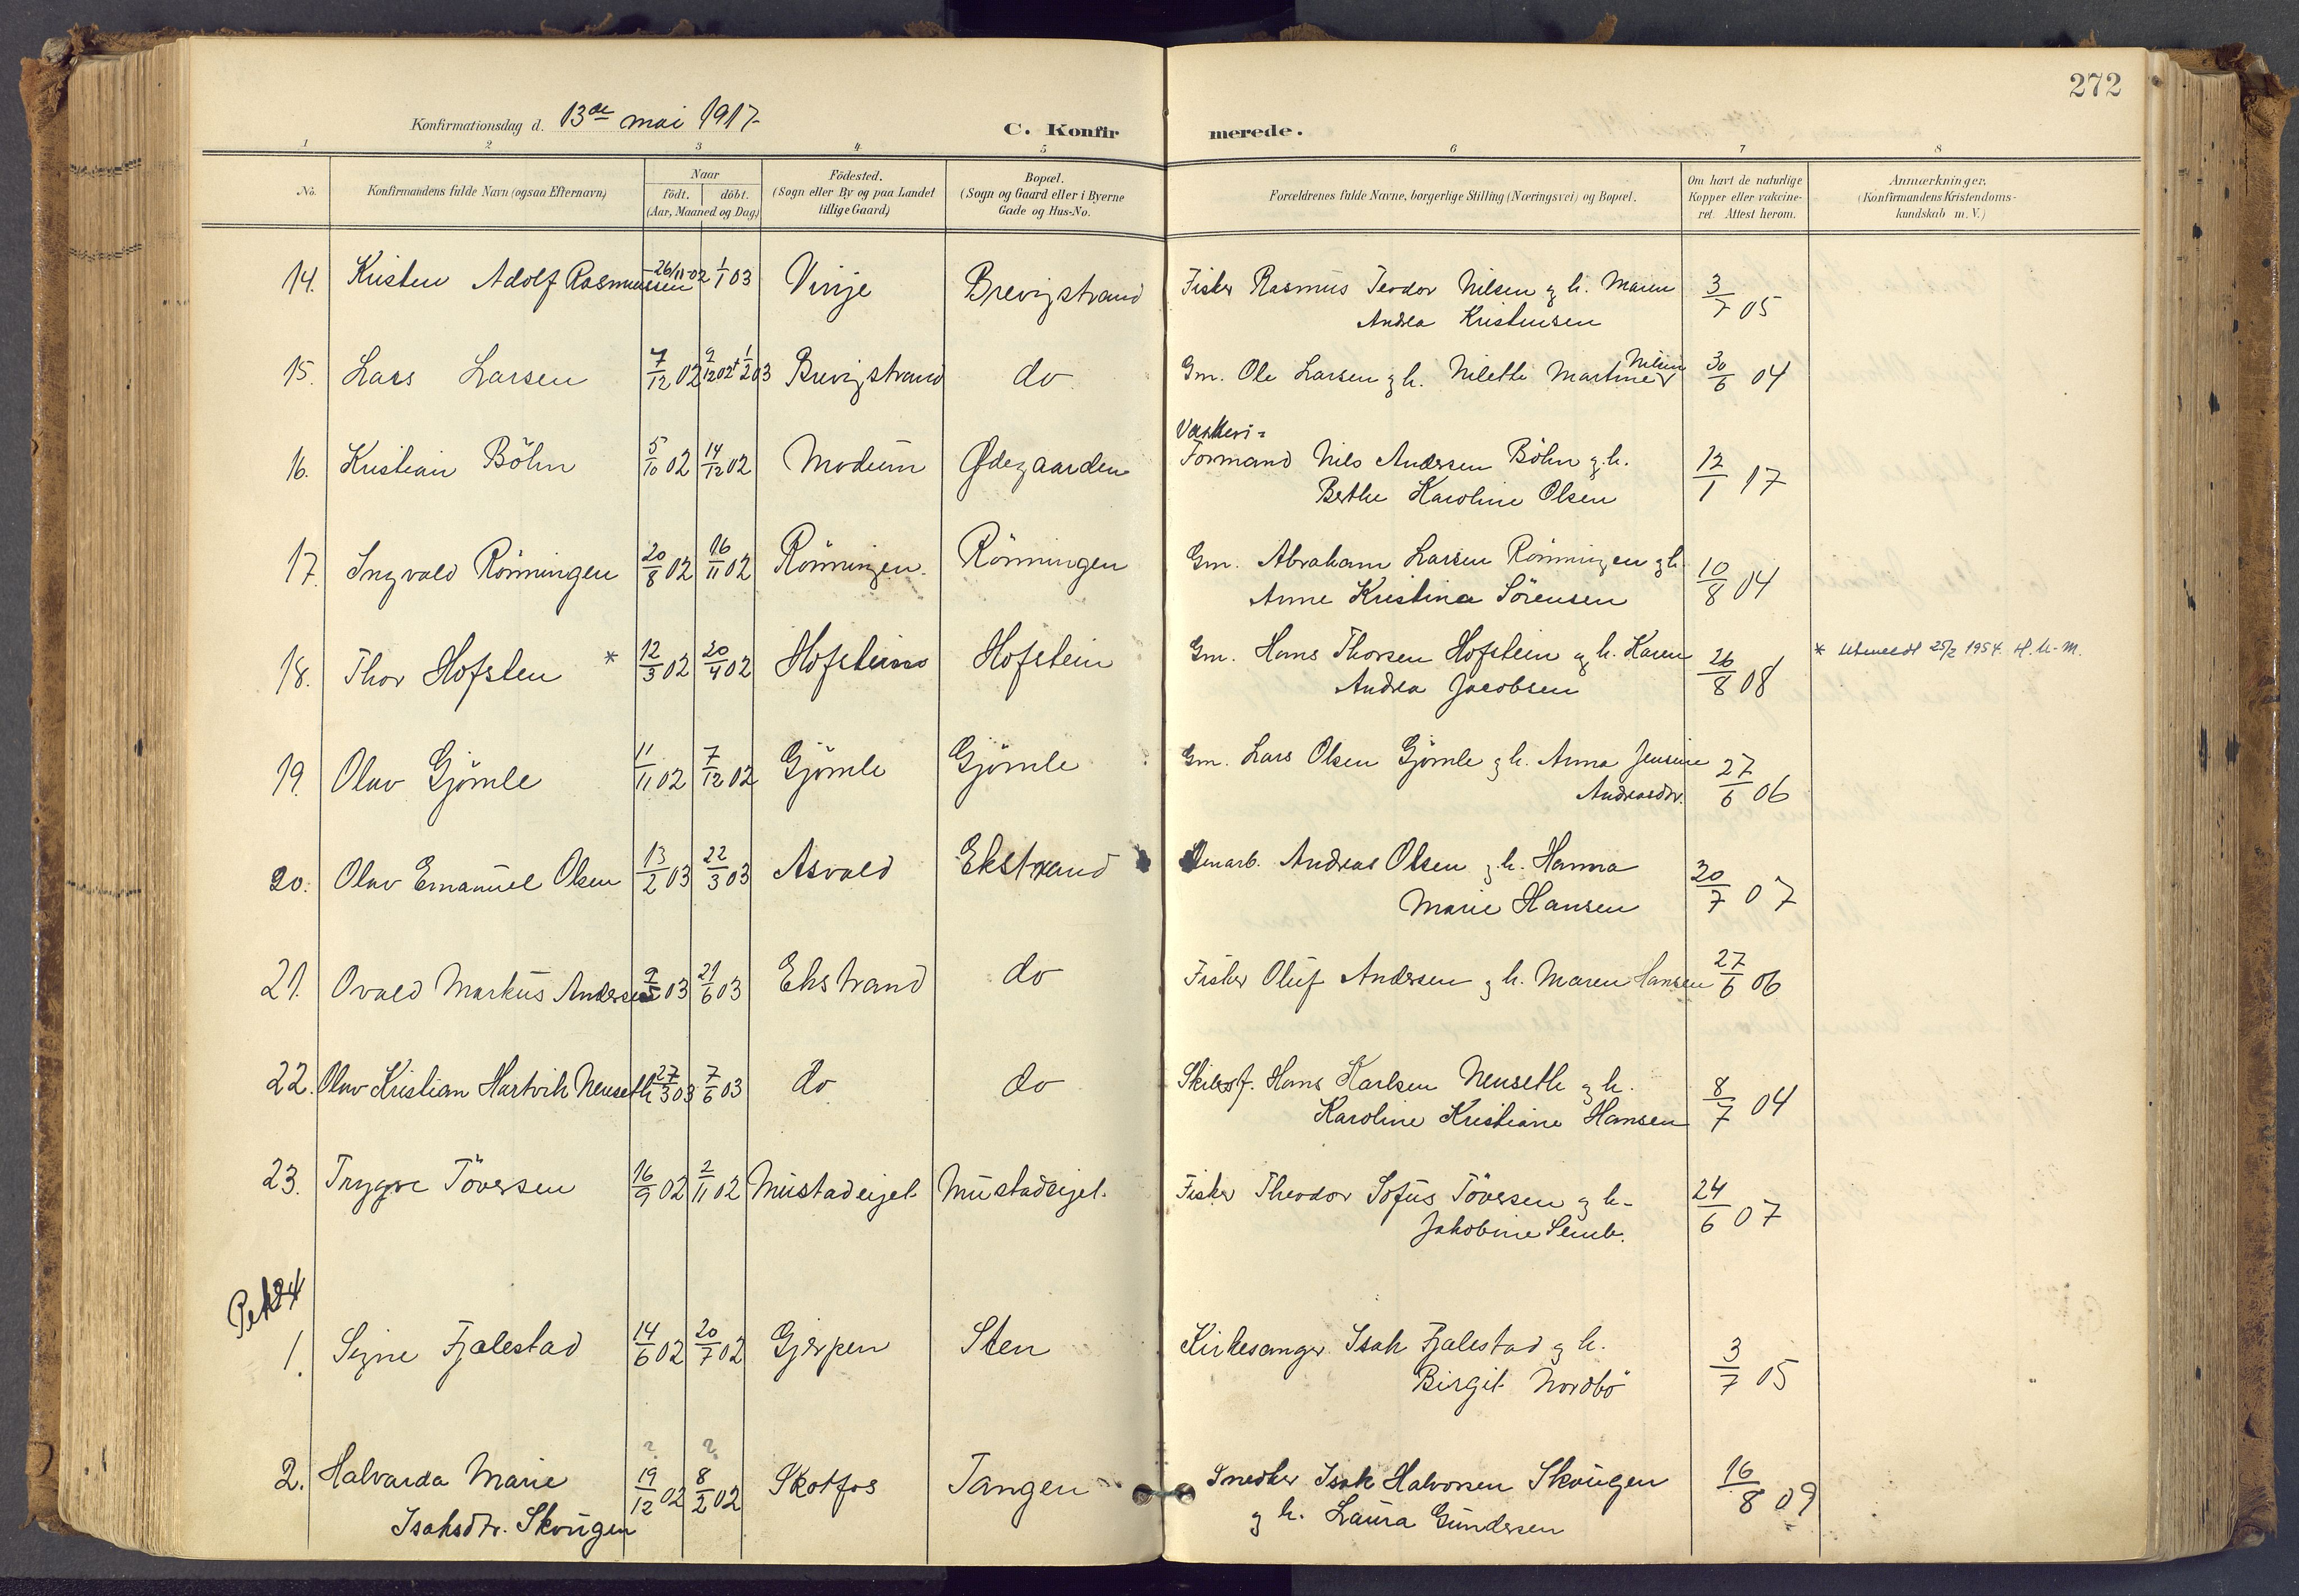 272
Konfirmationsdag d. 13de mai 1917 C. Konfirmerede.
1 2 3 4 5 6 7 8
No. Konfirmandens fulde Navn (ogsaa Efternavn) Naar födt. döbt. (Aar, Maaned og Dag) Födested. (Sogn eller By og paa Landet tillige Gaard) Bopæl. (Sogn og Gaard eller i Byerne Gade og Hus-No. Forældrenes fulde Navne, borgerlige Stilling (Næringsvei) og Bopæl. Om havt de naturlige Kopper eller vakcineret. Attest herom. Anmærkninger. (Konfirmandens Kristendomskundskab m. V.)
14. Kristen Adolf Rasmussen 26/11-02 1/1 03 Vinje Brevigstrand Fisker Rasmus Teodor Nilsen g h. Maren 3/7 05
Andrea Kristensen
15. Lars Larsen 7/12 02 9/12 02 + 1/2 03 Brevigstrand do Gm. Ole Larsen g h. Nilette Martine Nilsen 30/6 04
16. Kristian Böhn 5/10 02 14/12 02 Modum Ødegaarden Vaskeri=
Formand Nils Andersen Böhn g. h. 12/1 17
Berthe Karoline Olsen
17. Ingvald Rönningen 20/8 02 16/11 02 Rönningen. Rönningen Gm. Abraham Larsen Rönningen g h. 10/8 04
Anne Kristina Sörensen
18. Thor Hofsten * 12/3 02 20/4 02 Hofstein Gm. Hans Thorsen Hofstein g h. Karen 26/8 08 * Utmeldt 25/2 1954. H. U-M.
Andrea Jacobsen
19. Olav Gjömle 11/11 02 7/12 02 Gjömle Gjömle Gm. Lars Olsen Gjömle g h. Anna Jensine 27/6 06
Andreasdtr.
20. Olav Emanuel Olsen 13/2 03 22/3 03 Asvald Ekstrand Andreas Olsen g. h. Hanna 30/7 07
Marie Hansen
21. Ovald Markus Andersen 9/5 03 21/6 03 Ekstrand do Fisker Oluf Andersen g h. Maren Hansen 27/6 06
22. Olav Kristian Hartvik Neuseth 27/3 03 7/6 03 do do Hans Karlsen Neuseth g h. 8/7 04
Karoline Kristiane Hansen
23. Trygve Töversen 16/9 02 2/11 02 Mustadeijet Mustadeijet. Fisker Theodor Sofus Töversen g h- 24/6 07
Jakobine
1. Signe Fjalestad 14/6 02 20/7 02 Gjerpen Sten Kirkesanger Isak Fjalestad g h. 3/7 05
Birgit Nordbö
2. Halvarda Marie 19/12 02 ? 8/2 02 ? Skotfos Tangen Snedker Isak Halvorsen Skougen 16/8 09
Isaksdtr. Skougen g h. Laura Gundersen